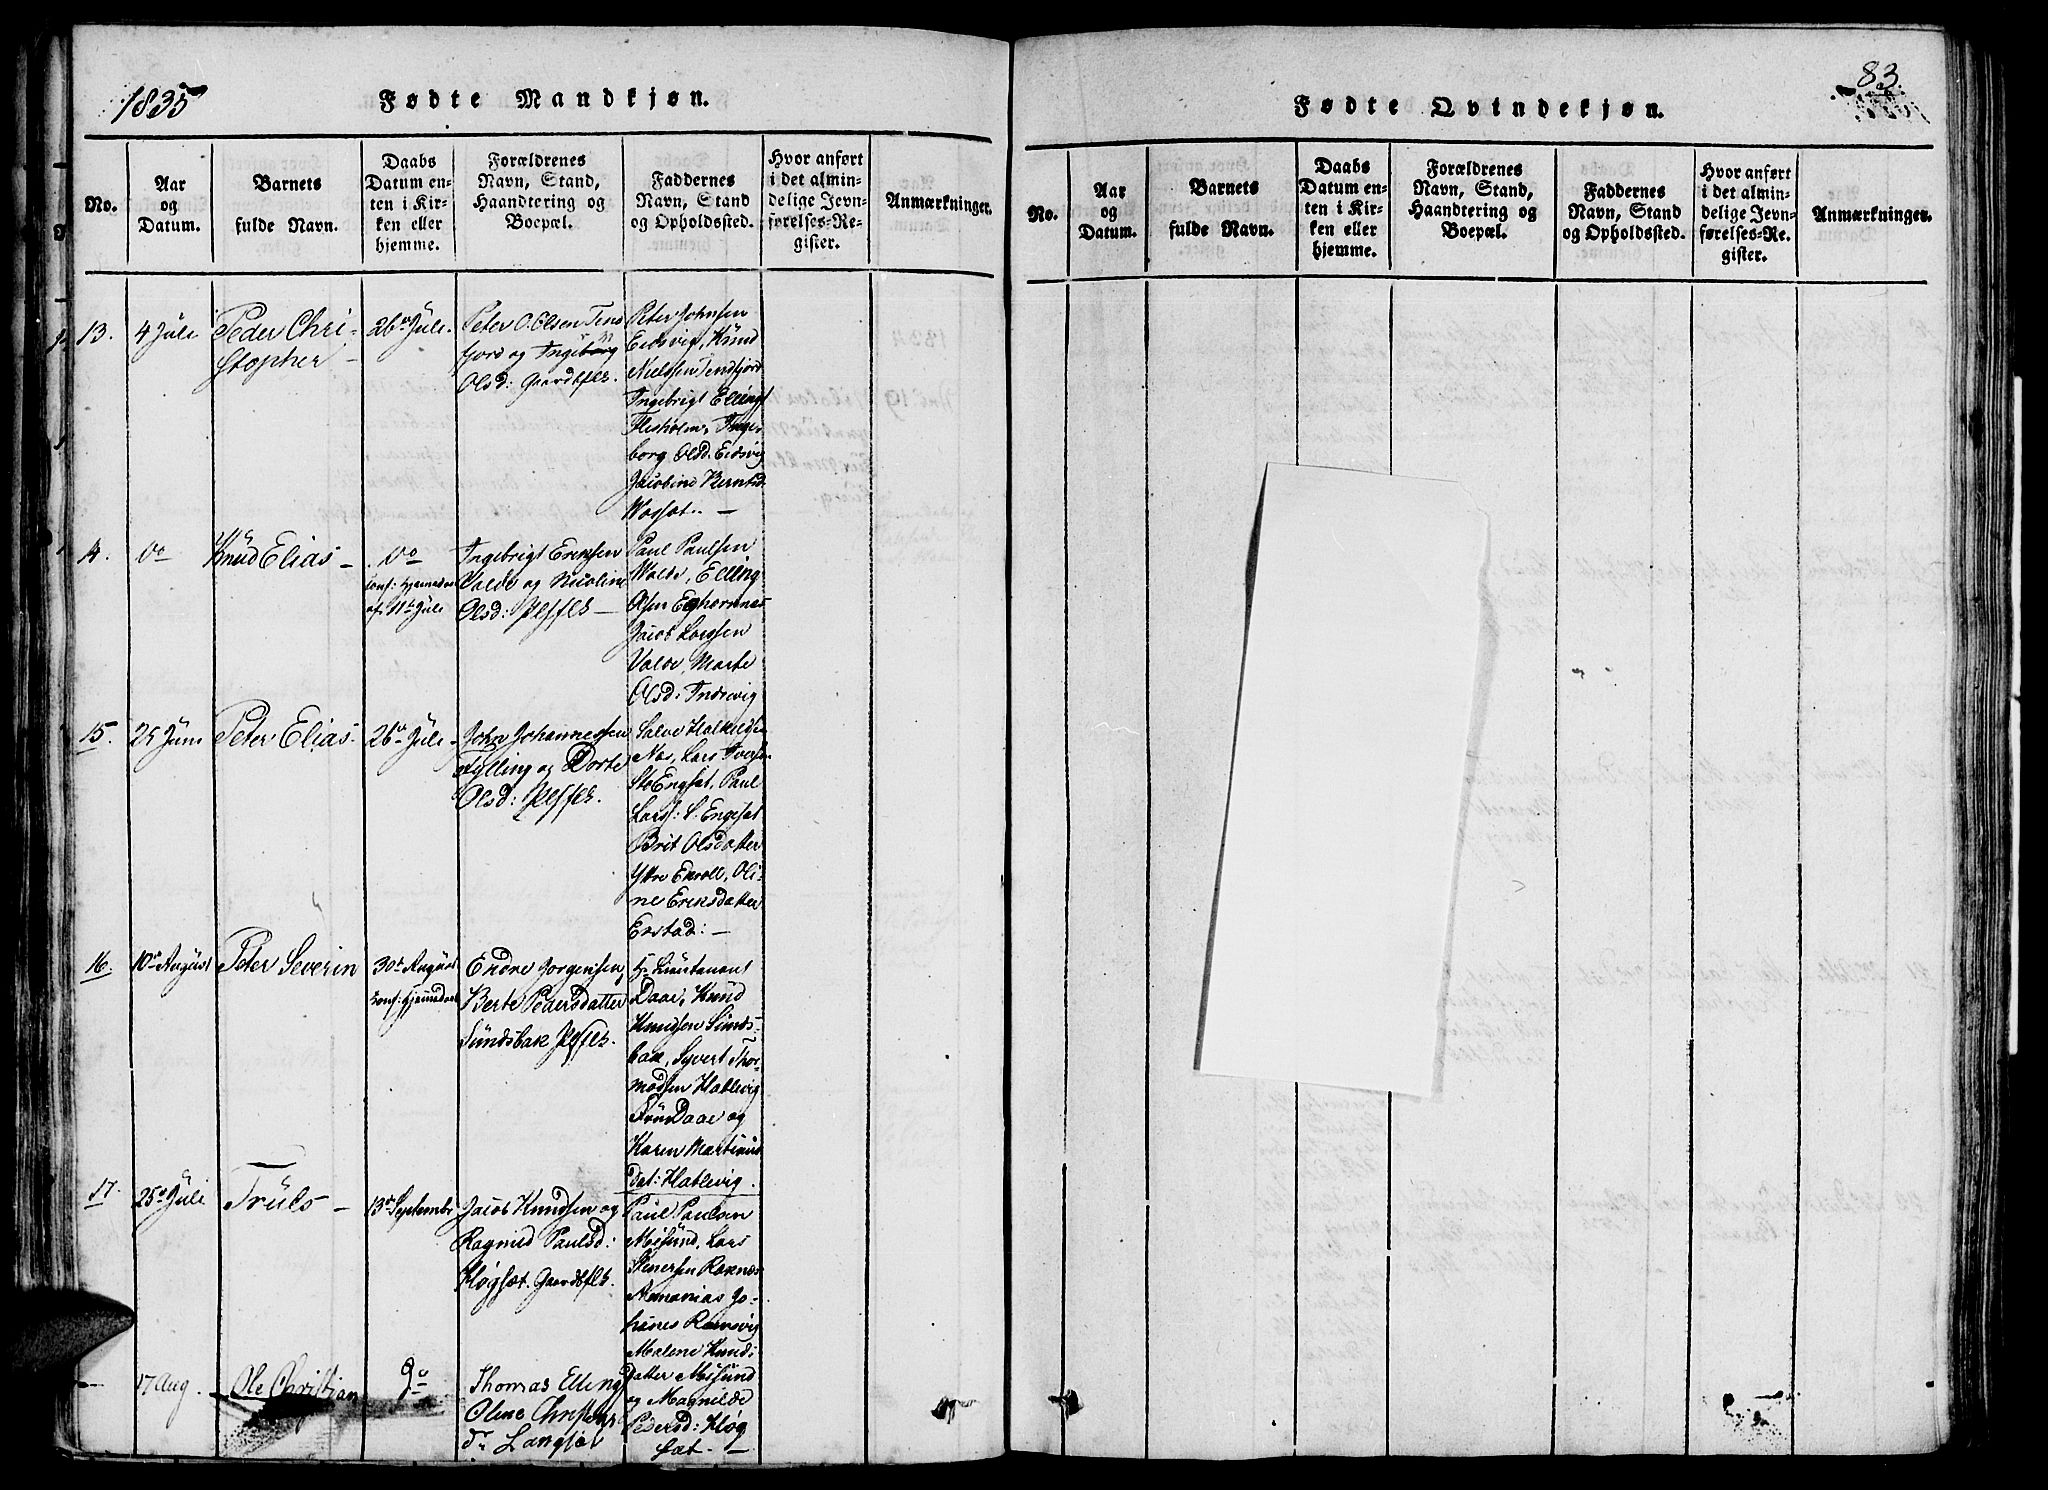 1835
Fødte Mandkjøn.
No.
Aar
og
Datum.
Barnets
fulde Navn.
Daabs
Datum en-
ten i Kir-
ken eller
hjemme.
Forældrenes
Navn, Stand,
Haandtering og
Boepæl.
Faddernes
Navn, Stand
og Opholdssted.
Hvor anført
i det almin-
delige Jevn-
førelses-Re-
gister.
Anmærkninger.
13.
4 Juli
Peder Chri-
stopher
26de Juli.
Peter O. Olsen Tens
fjord og Ingeborg
Olsd: Gaardbfles.
Peter Johnsen
Eidsvig, Knud
Nielssen Tensfjord
Ingebrigt Ellings
Flesholm, Inge-
borg Olsd. Eidsvig
Jacobine Berntsd.
Wagsat. –
14.
Do
Knud Elias –
Do
conf: hjemmedøbt
af 11te Juli
Ingebrigt Eriksen
Valde og Nicoline
Olsd:
Paul Paulsen
Walde, Elling
Olsen Eghornnes
Jacob Larssen
Valde, Marte
Olsd: Indrevig
15.
25 Juni
Peter Elias
26de Juli
John Johannessen
Fylling og Dorte
Olsd:
Nos, Lars Iversen
Sto Engsat, Paul
Larss: S. Engesat
Brit Olsdatter
Ytre Enroll, Oli-
ne Eriksdatter
Erstad: –
16.
10de August
Peter Severin
30te August
conf: hjemmedøbt
Endre Jørgensen,
Berte Pedersdatter
Sundsbak
Hr Lieutenant
Daae, Knud
Knudsen Sunds-
bak, Syvert Tho-
modsen Hatlevig
Frue Daae og
Karen Martinus
dat: Hatlevig.
17.
25de Juli
Truls –
13de Septembr
Jacob Knudsen og
Ragnild Paulsd:
Høgset. Gaardbfles.
Paul Paulsen
Misund, Lars
Stenersen Raknes
Annanias Jo-
hanes Ramsvig
Malene Knuds
datter Misund
og Magnilde
Pedersd: Høg
sæt. –
17 Aug.
Ole Christian
Do
Thomas Elling
Oline Christens
dr Langset
83
Fødte Qvindekjøn.
No.
Aar
og
Datum.
Barnets
fulde Navn.
Daabs
Datum en-
ten i Kir-
ken eller
hjemme.
Forældrenes
Navn, Stand,
Haandtering og
Boepæl.
Faddernes
Navn, Stand
og Opholdssted.
Hvor anført
i det almin-
delige Jevn-
førelses-Re-
gister.
Anmærkninger.